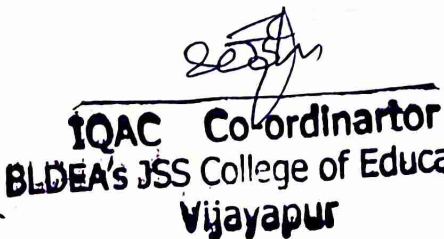 IQAC Co-ordinartor
BLDEA's JSS College of Educa
Vijayapur